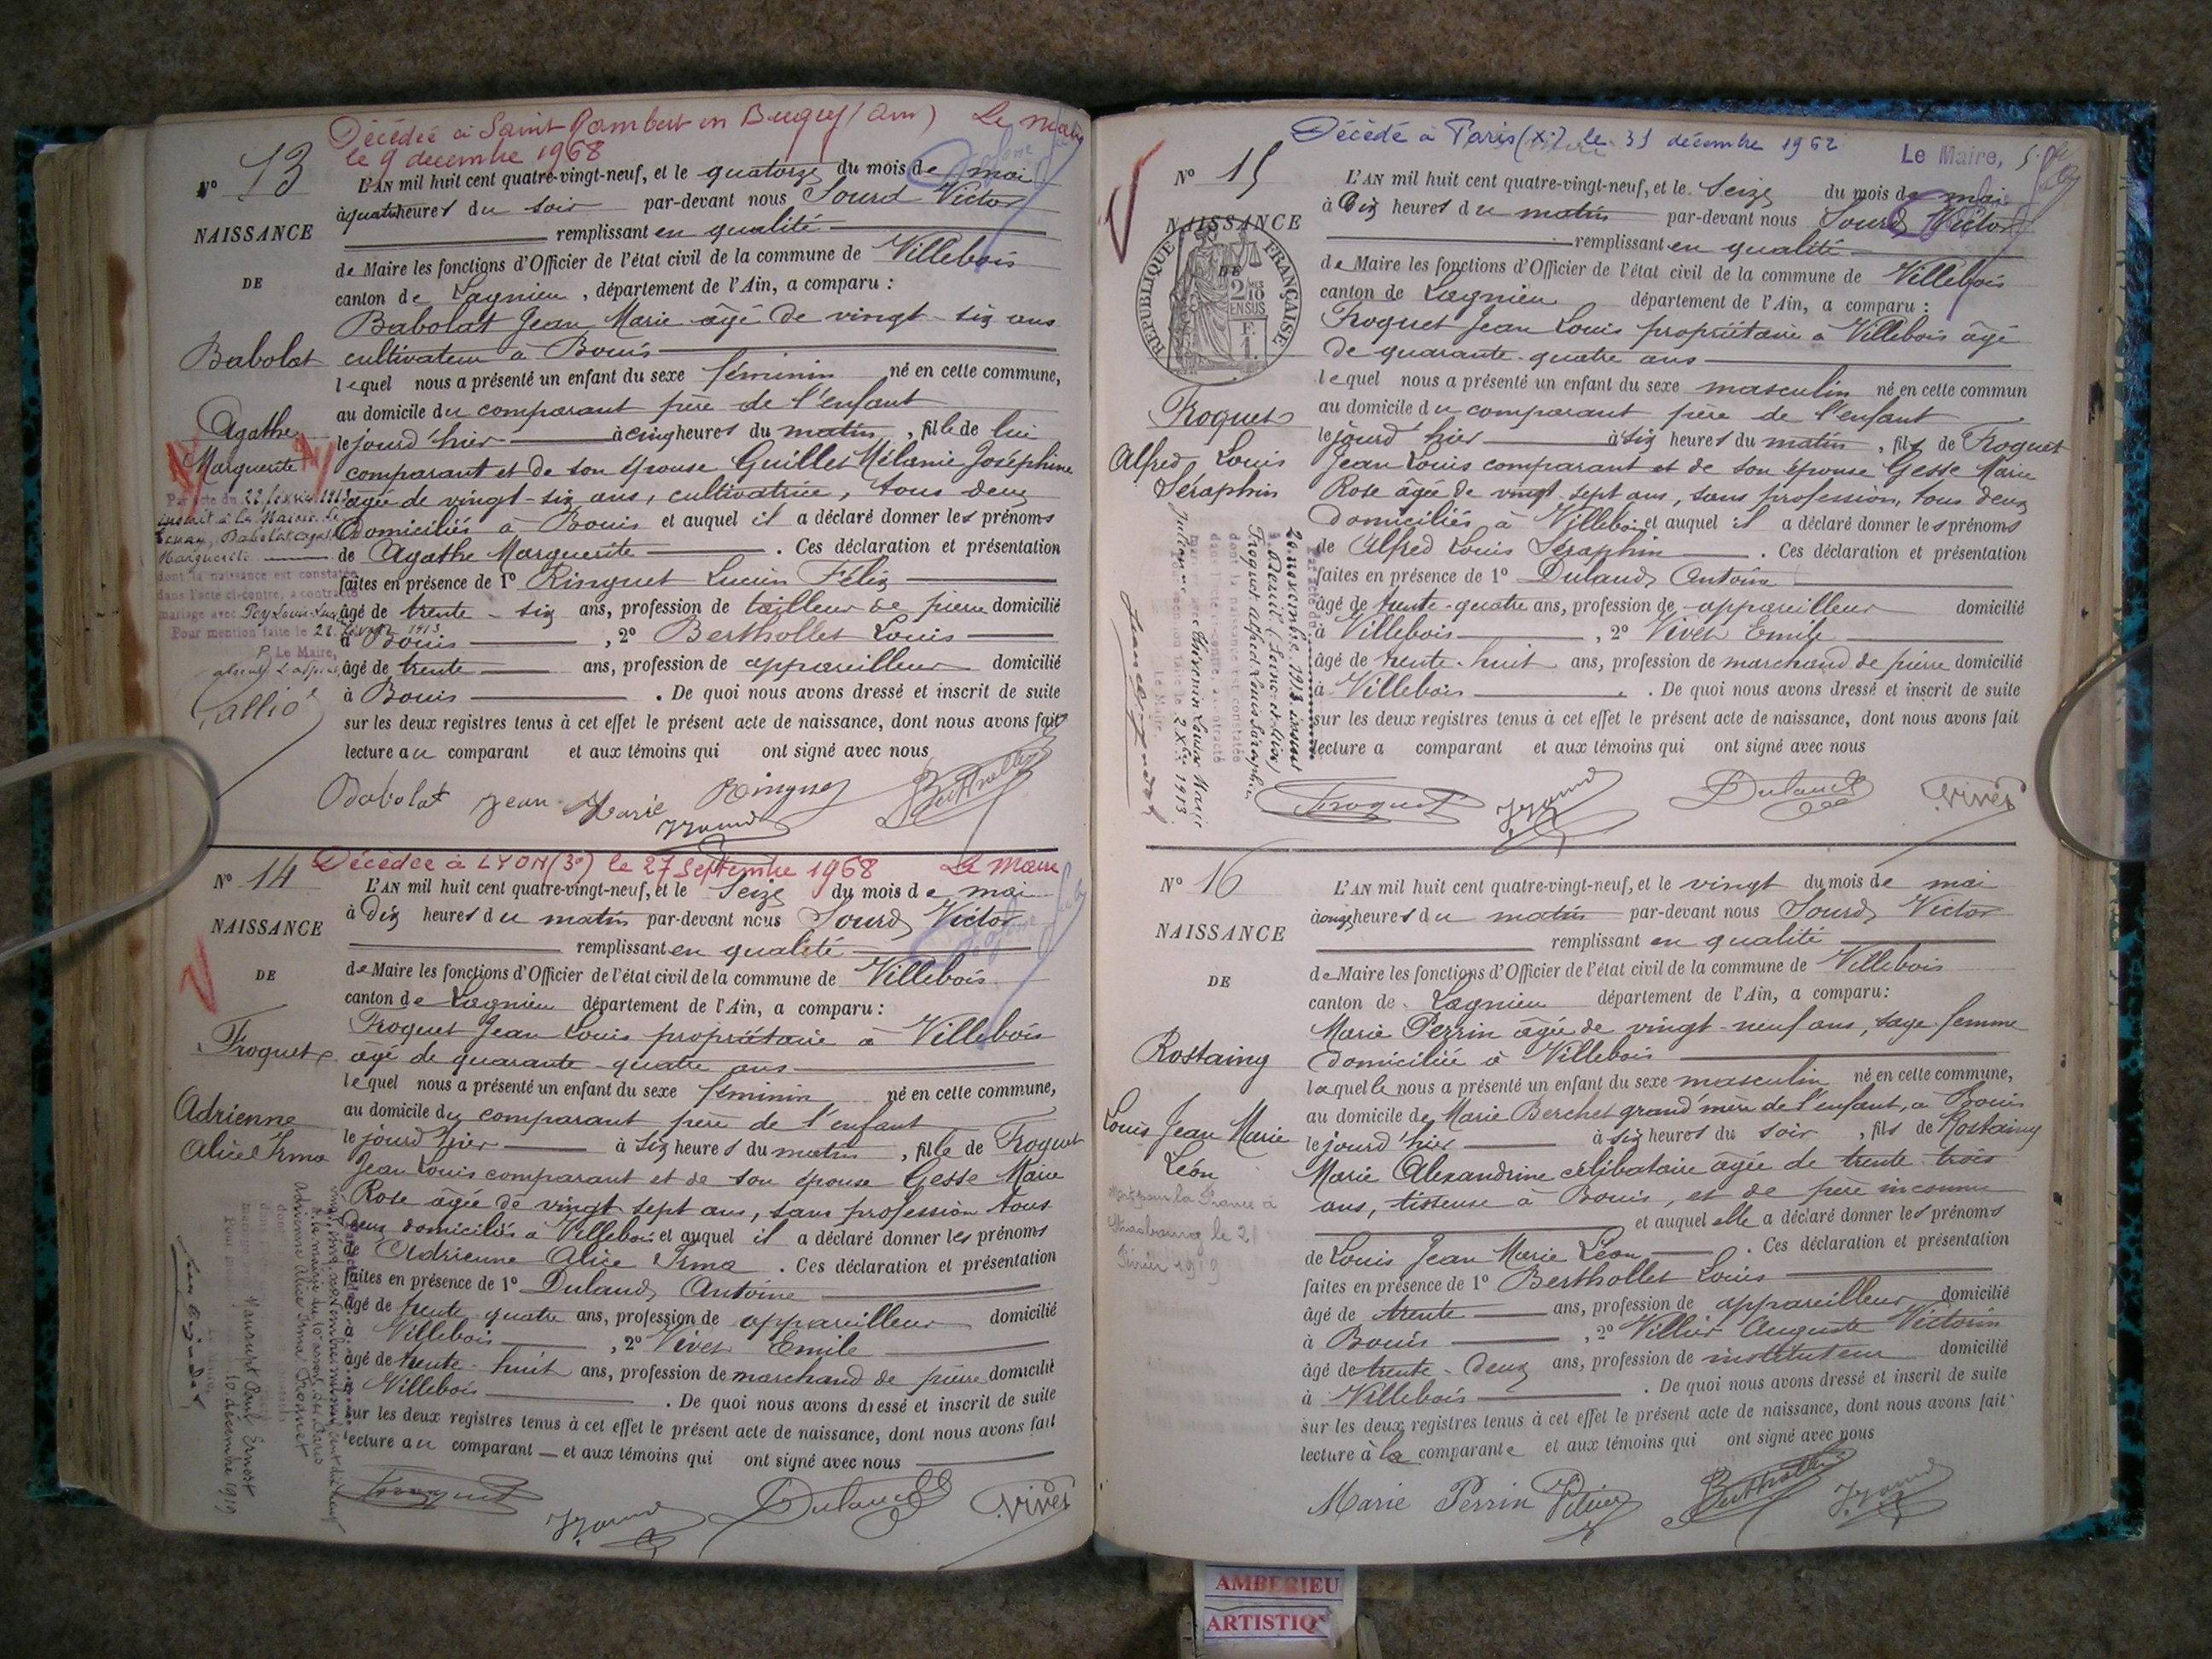 Décédée à Saint Rambert en Bugey (Ain) Le Maire
le 9 décembre 1968
N° 13
NAISSANCE
DE
Babolat
Agathe
Marguerite
L'AN mil huit cent quatre-vingt-neuf, et le quatorze du mois de mai
à quatre heures du soir par-devant nous Sourd Victor
remplissant en qualité
de Maire les fonctions d'Officier de l'état civil de la commune de Villebois
canton de Lagnieu, département de l'Ain, a comparu :
Babolat Jean Marie âgé de vingt-six ans
cultivateur à Bouis
lequel nous a présenté un enfant du sexe féminin né en cette commune,
au domicile du comparant père de l'enfant
le jourd'hier à cinq heures du matin, fille de lui
comparant et de son épouse Guillet Mélanie Joséphine
âgée de vingt-six ans, cultivatrice, tous deux
domiciliés à Bouis et auquel il a déclaré donner les prénoms
de Agathe Marguerite. Ces déclaration et présentation
faites en présence de 1° Ringuet Lucien Félix
âgé de trente-six ans, profession de tailleur de pierre domicilié
à Bouis, 2° Berthollet Louis
âgé de trente ans, profession de appareilleur domicilié
à Bouis. De quoi nous avons dressé et inscrit de suite
sur les deux registres tenus à cet effet le présent acte de naissance, dont nous avons fait
lecture au comparant et aux témoins qui ont signé avec nous
Par acte du 22 février 1913
inscrit à la Mairie de
Tenay, Babolat Agathe
Marguerite
dont la naissance est constatée
dans l'acte ci-contre, a contracté
mariage avec
Pour mention faite le 28 février 1913
Le Maire,
Babolat Jean Marie Ringuet Berthollet
Décédée à LYON (3e) le 27 Septembre 1968 Le Maire
N° 14
NAISSANCE
DE
Froquet
Adrienne
Alice Irma
L'AN mil huit cent quatre-vingt-neuf, et le seize du mois de mai
à dix heures du matin par-devant nous Sourd Victor
remplissant en qualité
de Maire les fonctions d'Officier de l'état civil de la commune de Villebois
canton de Lagnieu département de l'Ain, a comparu :
Froquet Jean Louis propriétaire à Villebois
âgé de quarante-quatre ans
lequel nous a présenté un enfant du sexe féminin né en cette commune,
au domicile du comparant père de l'enfant
le jourd'hier à six heures du matin, fille de Froquet
Jean Louis comparant et de son épouse Gesse Marie
Rose âgée de vingt-sept ans, sans profession tous
deux domiciliés à Villebois et auquel il a déclaré donner les prénoms
de Adrienne Alice Irma. Ces déclaration et présentation
faites en présence de 1° Duland Antoine
âgé de trente-quatre ans, profession de appareilleur domicilié
à Villebois, 2° Vivet Emile
âgé de trente-huit ans, profession de marchand de pierre domicilié
à Villebois. De quoi nous avons dressé et inscrit de suite
sur les deux registres tenus à cet effet le présent acte de naissance, dont nous avons fait
lecture au comparant et aux témoins qui ont signé avec nous
Adrienne Alice Irma Froquet
10 décembre 1919
Froquet Duland Vivet
Décédé à Paris (X°) le 31 décembre 1962
Le Maire,
N° 15
NAISSANCE
DE
RÉPUBLIQUE FRANÇAISE
2/10
EN SUS
F.
1.
Froquet
Alfred Louis
Séraphin
L'AN mil huit cent quatre-vingt-neuf, et le seize du mois de mai
à dix heures du matin par-devant nous Sourd Victor
remplissant en qualité
de Maire les fonctions d'Officier de l'état civil de la commune de Villebois
canton de Lagnieu département de l'Ain, a comparu :
Froquet Jean Louis propriétaire à Villebois âgé
de quarante-quatre ans
lequel nous a présenté un enfant du sexe masculin né en cette commun
au domicile du comparant père de l'enfant
le jourd'hier à six heures du matin, fils de Froquet
Jean Louis comparant et de son épouse Gesse Marie
Rose âgée de vingt-sept ans, sans profession, tous deux
domiciliés à Villebois et auquel il a déclaré donner les prénoms
de Alfred Louis Séraphin. Ces déclaration et présentation
faites en présence de 1° Duland Antoine
âgé de trente-quatre ans, profession de appareilleur domicilié
à Villebois, 2° Vivet Emile
âgé de trente-huit ans, profession de marchand de pierre domicilié
à Villebois. De quoi nous avons dressé et inscrit de suite
sur les deux registres tenus à cet effet le présent acte de naissance, dont nous avons fait
lecture a comparant et aux témoins qui ont signé avec nous
20 novembre 1913 inscrit
Froquet Alfred Louis Séraphin
dont la naissance est constatée
dans l'acte ci-contre, a contracté
Le Maire,
Froquet Duland Vivet
N° 16
NAISSANCE
DE
Rostaing
Louis Jean Marie
Léon
L'AN mil huit cent quatre-vingt-neuf, et le vingt du mois de mai
à onze heures du matin par-devant nous Sourd Victor
remplissant en qualité
de Maire les fonctions d'Officier de l'état civil de la commune de Villebois
canton de Lagnieu département de l'Ain, a comparu :
Marie Perrin âgée de vingt-neuf ans, sage femme
domiciliée à Villebois
laquelle nous a présenté un enfant du sexe masculin né en cette commune,
au domicile de Marie Berchet grand'mère de l'enfant, à Bouis
le jourd'hier à six heures du soir, fils de Rostaing
Marie Alexandrine célibataire âgée de trente-trois
ans, tisseuse à Bouis, et de père inconnu
et auquel elle a déclaré donner les prénoms
de Louis Jean Marie Léon. Ces déclaration et présentation
faites en présence de 1° Berthollet Louis
âgé de trente ans, profession de appareilleur domicilié
à Bouis, 2° Villier Auguste Victorin
âgé de trente-deux ans, profession de instituteur domicilié
à Villebois. De quoi nous avons dressé et inscrit de suite
sur les deux registres tenus à cet effet le présent acte de naissance, dont nous avons fait
lecture à la comparante et aux témoins qui ont signé avec nous
Mort pour la France à
Strasbourg le 21
Février 1919
Marie Perrin Villier Berthollet
AMBERIEU
ARTISTIQ